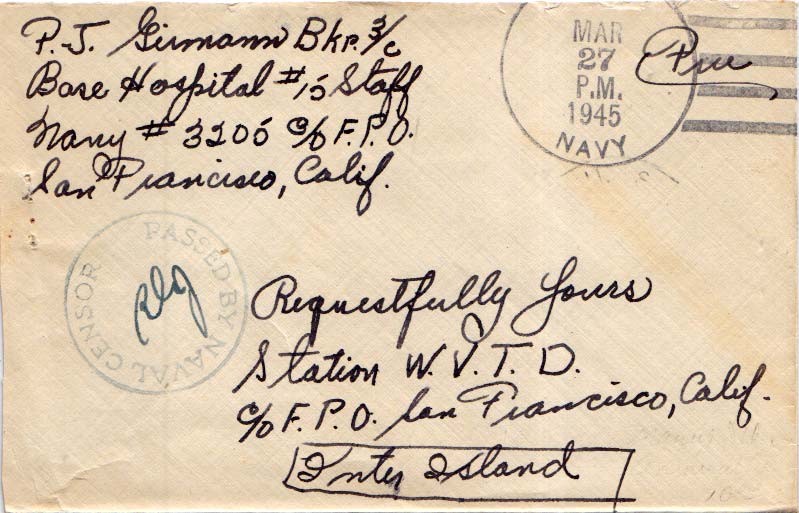 P.J. Girmann Bkr. 3/c
Base Hospital #15 Staff
Navy # 3205 c/o F.P.O.
San Francisco, Calif.
MAR
27
P.M.
1945
NAVY
Free
PASSED BY NAVAL CENSOR
Requestfully Yours
Station W.V.T.D.
c/o F.P.O. San Francisco, Calif.
Inter Island